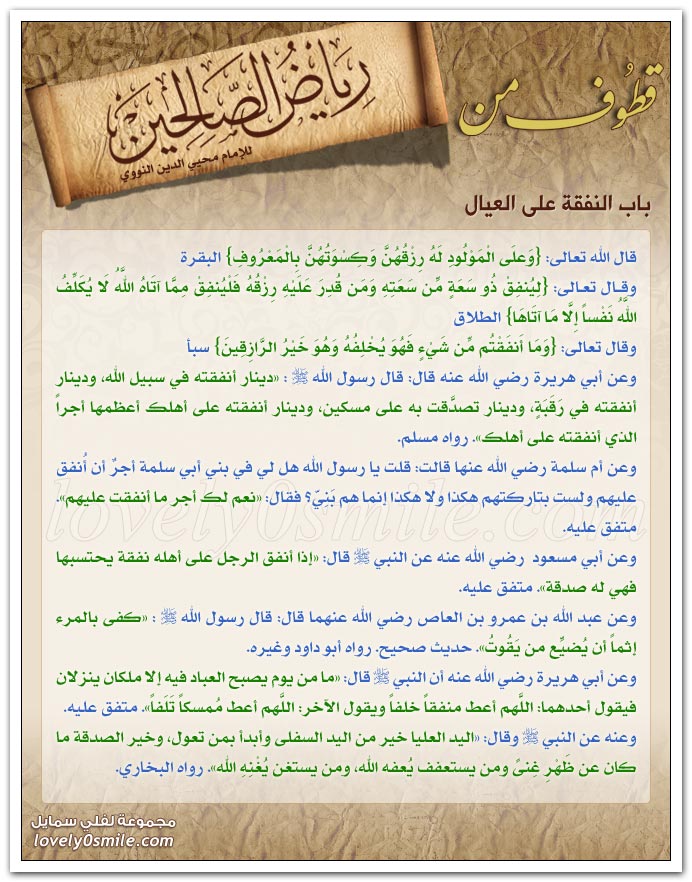 قطوف من
رياض الصالحين
للإمام محيي الدين النووي
باب النفقة على العيال
قال الله تعالى: {وَعلَى الْمَوْلُودِ لَهُ رِزْقُهُنَّ وَكِسْوَتُهُنَّ بِالْمَعْرُوفِ} البقرة
وقـال تعـالى: {لِيُنْفِقْ ذُو سَعَةٍ مِّن سَعَتِهِ وَمَن قُدِرَ عَلَيْهِ رِزْقُهُ فَلْيُنفِقْ مِمَّا آتَاهُ اللَّهُ لَا يُكَلِّفُ
اللَّهُ نَفْساً إِلَّا مَا آتَاهَا} الطلاق
وقال تعالى: {وَمَا أَنفَقْتُم مِّن شَيْءٍ فَهُوَ يُخْلِفُهُ وَهُوَ خَيْرُ الرَّازِقِينَ} سبأ
وعن أبي هريرة رضي الله عنه قال: قال رسول الله ﷺ : «دينار أنفقته في سبيل الله، ودينار
أنفقته في رَقَبَةٍ، ودينار تصدَّقت به على مسكين، ودينار أنفقته على أهلك أعظمها أجراً
الذي أنفقته على أهلك». رواه مسلم.
وعن أم سلمة رضي الله عنها قالت: قلت يا رسول الله هل لي في بني أبي سلمة أجرٌ أن أُنفق
عليهم ولست بتاركتهم هكذا ولا هكذا إنما هم بَنِيّ؟ فقال: «نعم لك أجر ما أنفقت عليهم».
متفق عليه.
وعن أبي مسعود رضي الله عنه عن النبي ﷺ قال: «إذا أنفق الرجل على أهله نفقة يحتسبها
فهي له صدقة». متفق عليه.
وعن عبد الله بن عمرو بن العاص رضي الله عنهما قال: قال رسول الله ﷺ : «كفى بالمرء
إثماً أن يُضيِّع من يَقُوتُ». حديث صحيح. رواه أبو داود وغيره.
وعن أبي هريرة رضي الله عنه أن النبي ﷺ قال: «ما من يوم يصبح العباد فيه إلا ملكان ينزلان
فيقول أحدهما: اللَّهم أعط منفقاً خلفاً ويقول الآخر: اللَّهم أعط مُمسكاً تَلَفاً». متفق عليه.
وعنه عن النبي ﷺ وقال: «اليد العليا خير من اليد السفلى وأبدأ بمن تعول، وخير الصدقة ما
كان عن ظَهْرِ غِنىً ومن يستعفف يُعفه الله، ومن يستغن يُغْنِهِ الله». رواه البخاري.
lovely0smile.com
مجموعة لفلي سمايل
lovely0smile.com